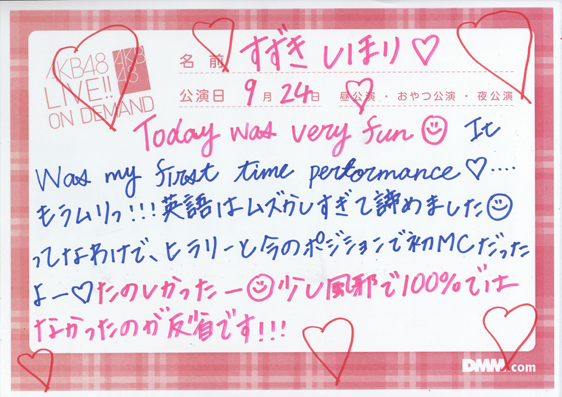 AKB48
LIVE!!
ON DEMAND
AKB
48
名前 すずき しほり♡
公演日 9月24日 昼公演・おやつ公演・夜公演
Today was very fun ☺ It
was my first time performance ♡‥‥
もうムリっ!!!英語はムズかしすぎて諦めました☺
ってなわけで、ヒラリーと今のポジションで初MCだった
よー♡たのしかったー☺少し風邪で100%では
なかったのが反省です!!!
DMM.com